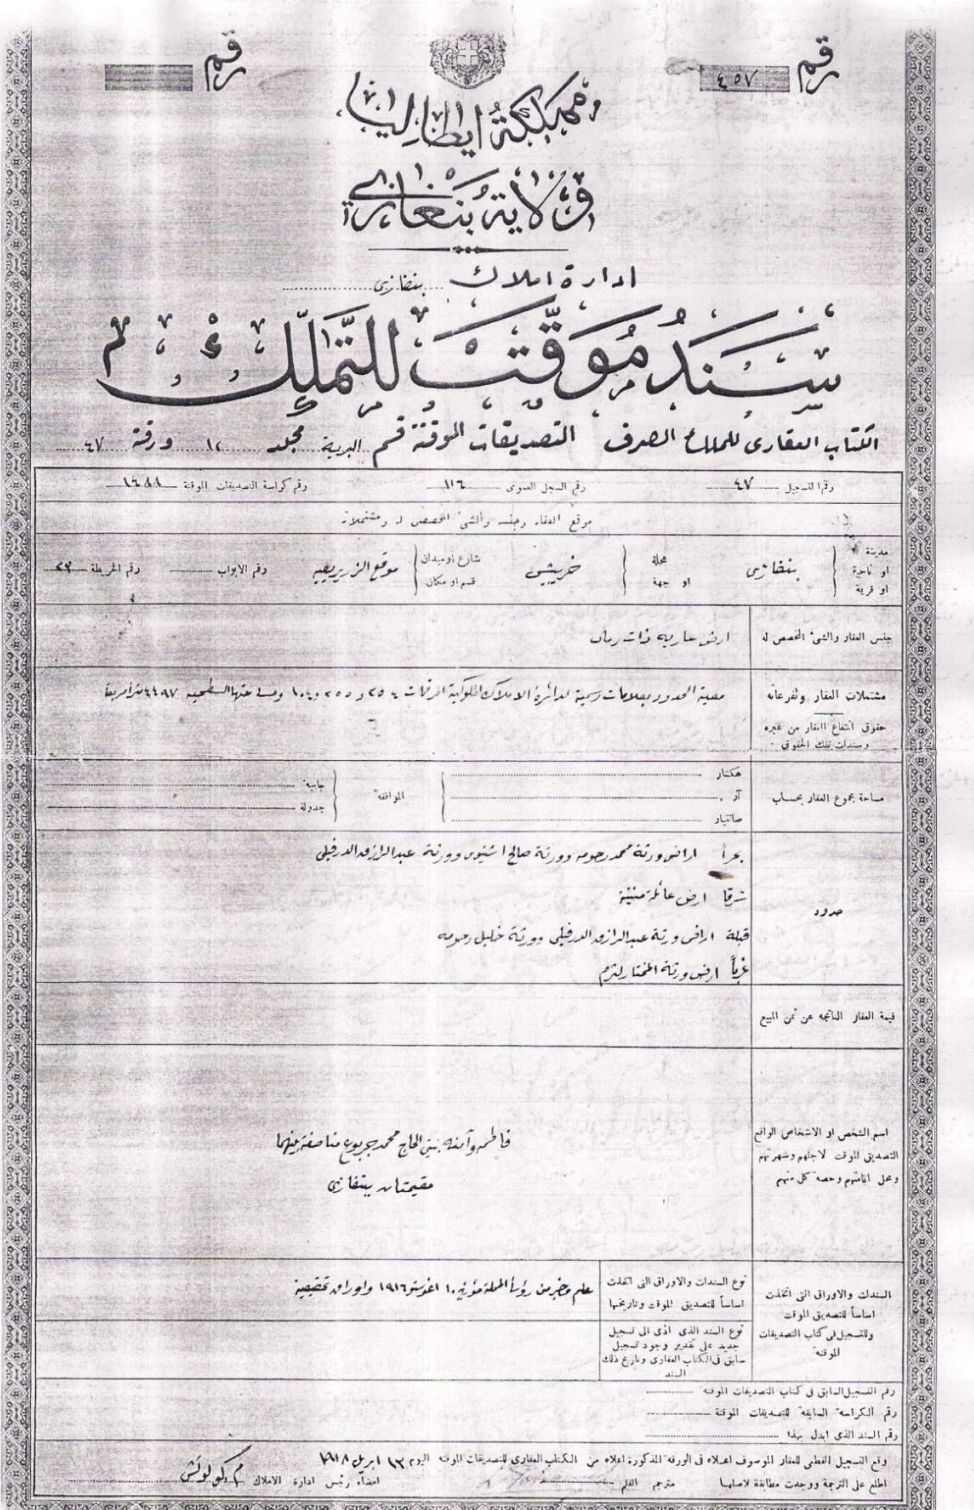 رقم ٤٥٧
رقم
مملكة ايطاليا
ولاية بنغازي
ادارة املاك بنغازي
سند موقّت للتملّك
الكتاب العقارى للملك الصرف التصديقات الموقتة قسم البرية مجلد ١٢ ورقة ٤٧
رقم التسجيل ٤٧ رقم السجل العمومى ١١٦ رقم كراسة التصديقات الموقتة ١٤٨٨
موقع العقار وجنسه والشئ المخصص له ومشتملاته
مدينة او ناحية او قرية بنغازى محلة او جهة خريبيش شارع او ميدان قسم او مكان موقع الزريريعيه رقم الابواب رقم الخريطة ٢٣
جنس العقار والشئ المخصص له ارض عاريه ذات رمال
مشتملات العقار وتفرعاته معينة الحدود بعلامات رسمية لدائرة الاملاك
حقوق انتفاع العقار من غيره
وسندات تلك الحقوق
مساحة مجموع العقار بحساب
هكتار
آر
صانتيار
الموافقة
جابية
جدولة
حدود
بحراً اراضى ورثة محمد رحومه وورثة صالح اشنيوى وورثة عبدالرازق الدرفيلى
شرقا ارض عائلة منينة
قبلة اراضى ورثة عبدالرازق الدرفيلى وورثة خليل رحومه
غرباً ارض ورثة المختار لترم
قيمة العقار الناتجه عن ثمن المبيع
اسم الشخص او الاشخاص الواقع
التصديق الموقت لاجلهم وشهرتهم
ومحل اقامتهم وحصة كل منهم
فاطمه وآمنه بنتى الحاج محمد جربوع مناصفة بينهما
مقيمتان ببنغازى
السندات والاوراق التى اتخذت
اساساً للتصديق الموقت
وللتسجيل فى كتاب التصديقات
الموقتة
نوع السندات والاوراق التى اتخذت
اساساً للتصديق الموقت وتاريخها
علم وخبر من رؤساء المحلة مؤرخ ١٠ اغوستو ١٩١٦ واوراق تحقيقية
نوع السند الذى ادى الى تسجيل
جديد على تقدير وجود تسجيل
سابق فى الكتاب العقارى وتاريخ ذلك
السند
رقم التسجيل السابق فى كتاب التصديقات الموقتة
رقم الكراسة السابقة للتصديقات الموقتة
رقم السند الذى ابدل بهذا
وقع التسجيل القطعى للعقار الموصوف اعلاه فى الورقة المذكورة اعلاه من الكتاب العقارى للتصديقات الموقتة اليوم ١٣ ابريل ١٩١٨
اطلع على الترجمة ووجدت مطابقة لاصلها مترجم القلم امضاء رئيس ادارة الاملاك